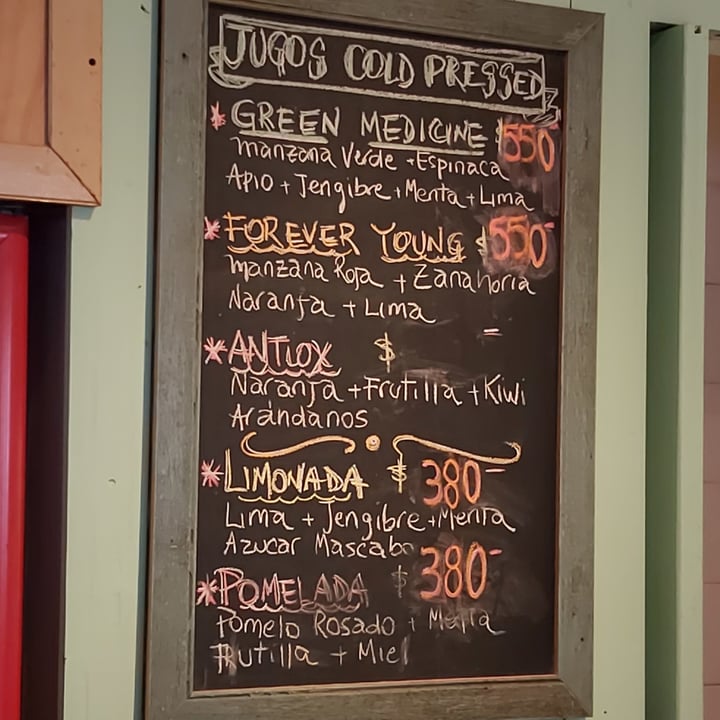 JUGOS COLD PRESSED
* GREEN MEDICINE $550-
manzana Verde + Espinaca
Apio + Jengibre + Menta + Lima
* FOREVER YOUNG $550-
manzana Roja + Zanahoria
Naranja + Lima
* ANTIOX $ -
Naranja + Frutilla + Kiwi
Arandanos
* LIMONADA $ 380-
Lima + Jengibre + Menta
Azucar Mascabo
* POMELADA $ 380-
Pomelo Rosado + Menta
Frutilla + Miel